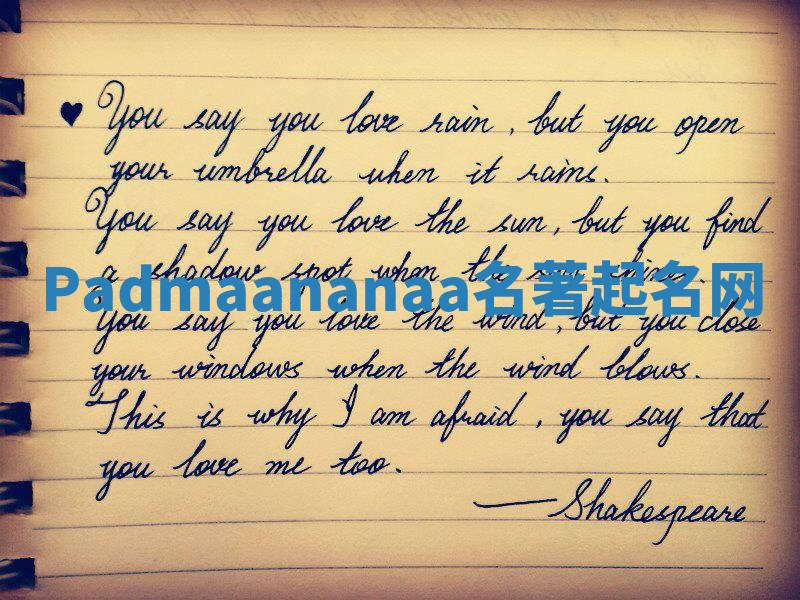 ♥ You say you love rain, but you open
your umbrella when it rains.
You say you love the sun, but you find
a shadow spot when the sun shines.
Padmaananaa名著起名网
You say you love the wind, but you close
your windows when the wind blows.
This is why I am afraid, you say that
you love me too.
— Shakespeare